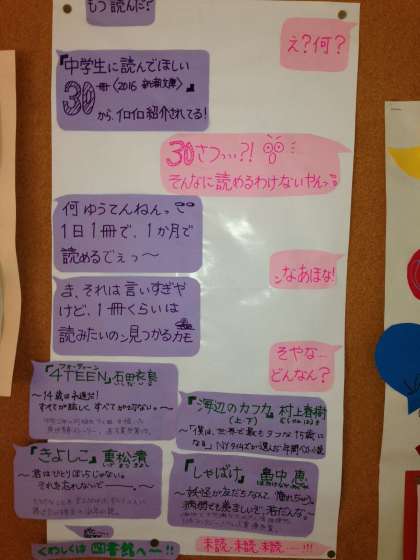 もう読んだ?
え?何?
『中学生に読んでほしい
30冊〈2016 新潮文庫〉』
から、イロイロ紹介されてる!
30さつ…?!
そんなに読めるわけないやんっ
何ゆうてんねんっ
1日1冊で、1か月で
読めるでぇっ〜
んなあほな!
ま、それは言いすぎや
けど、1冊くらいは
読みたいの見つかるカモ
そやな…
どんなん?
フォーティーン
『4TEEN』石田衣良
〜14歳は永遠だ!
『海辺のカフカ』村上春樹
(上・下)
〜「僕は、世界で最もタフな15歳に
なる」NYタイムズが選んだ年間ベスト
『きよしこ』重松清
〜君はひとりぼっちじゃない。
それを忘れないで
『しゃばけ』畠中恵
〜妖怪が友だちなんて 憧れちゃう
病弱でも羨ましいぞ、若だんな。〜
くわしくは図書館へ〜!!
未読、未読、未読……!!!